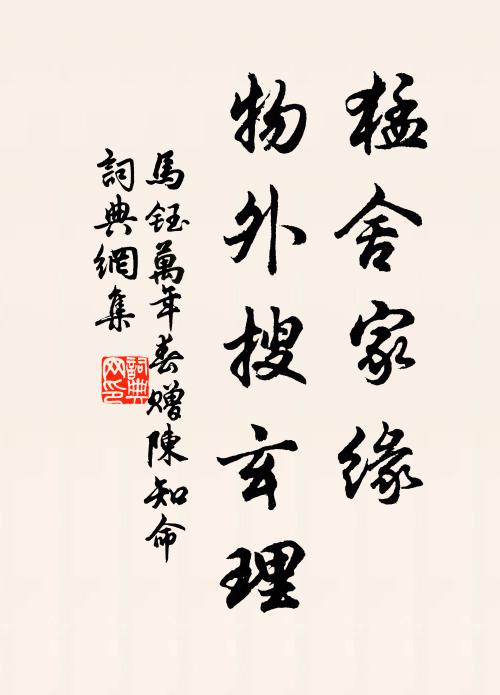 猛舍家缘
物外搜玄理
馬鈺萬年春赠陳知命
詞典網集
詞典網印